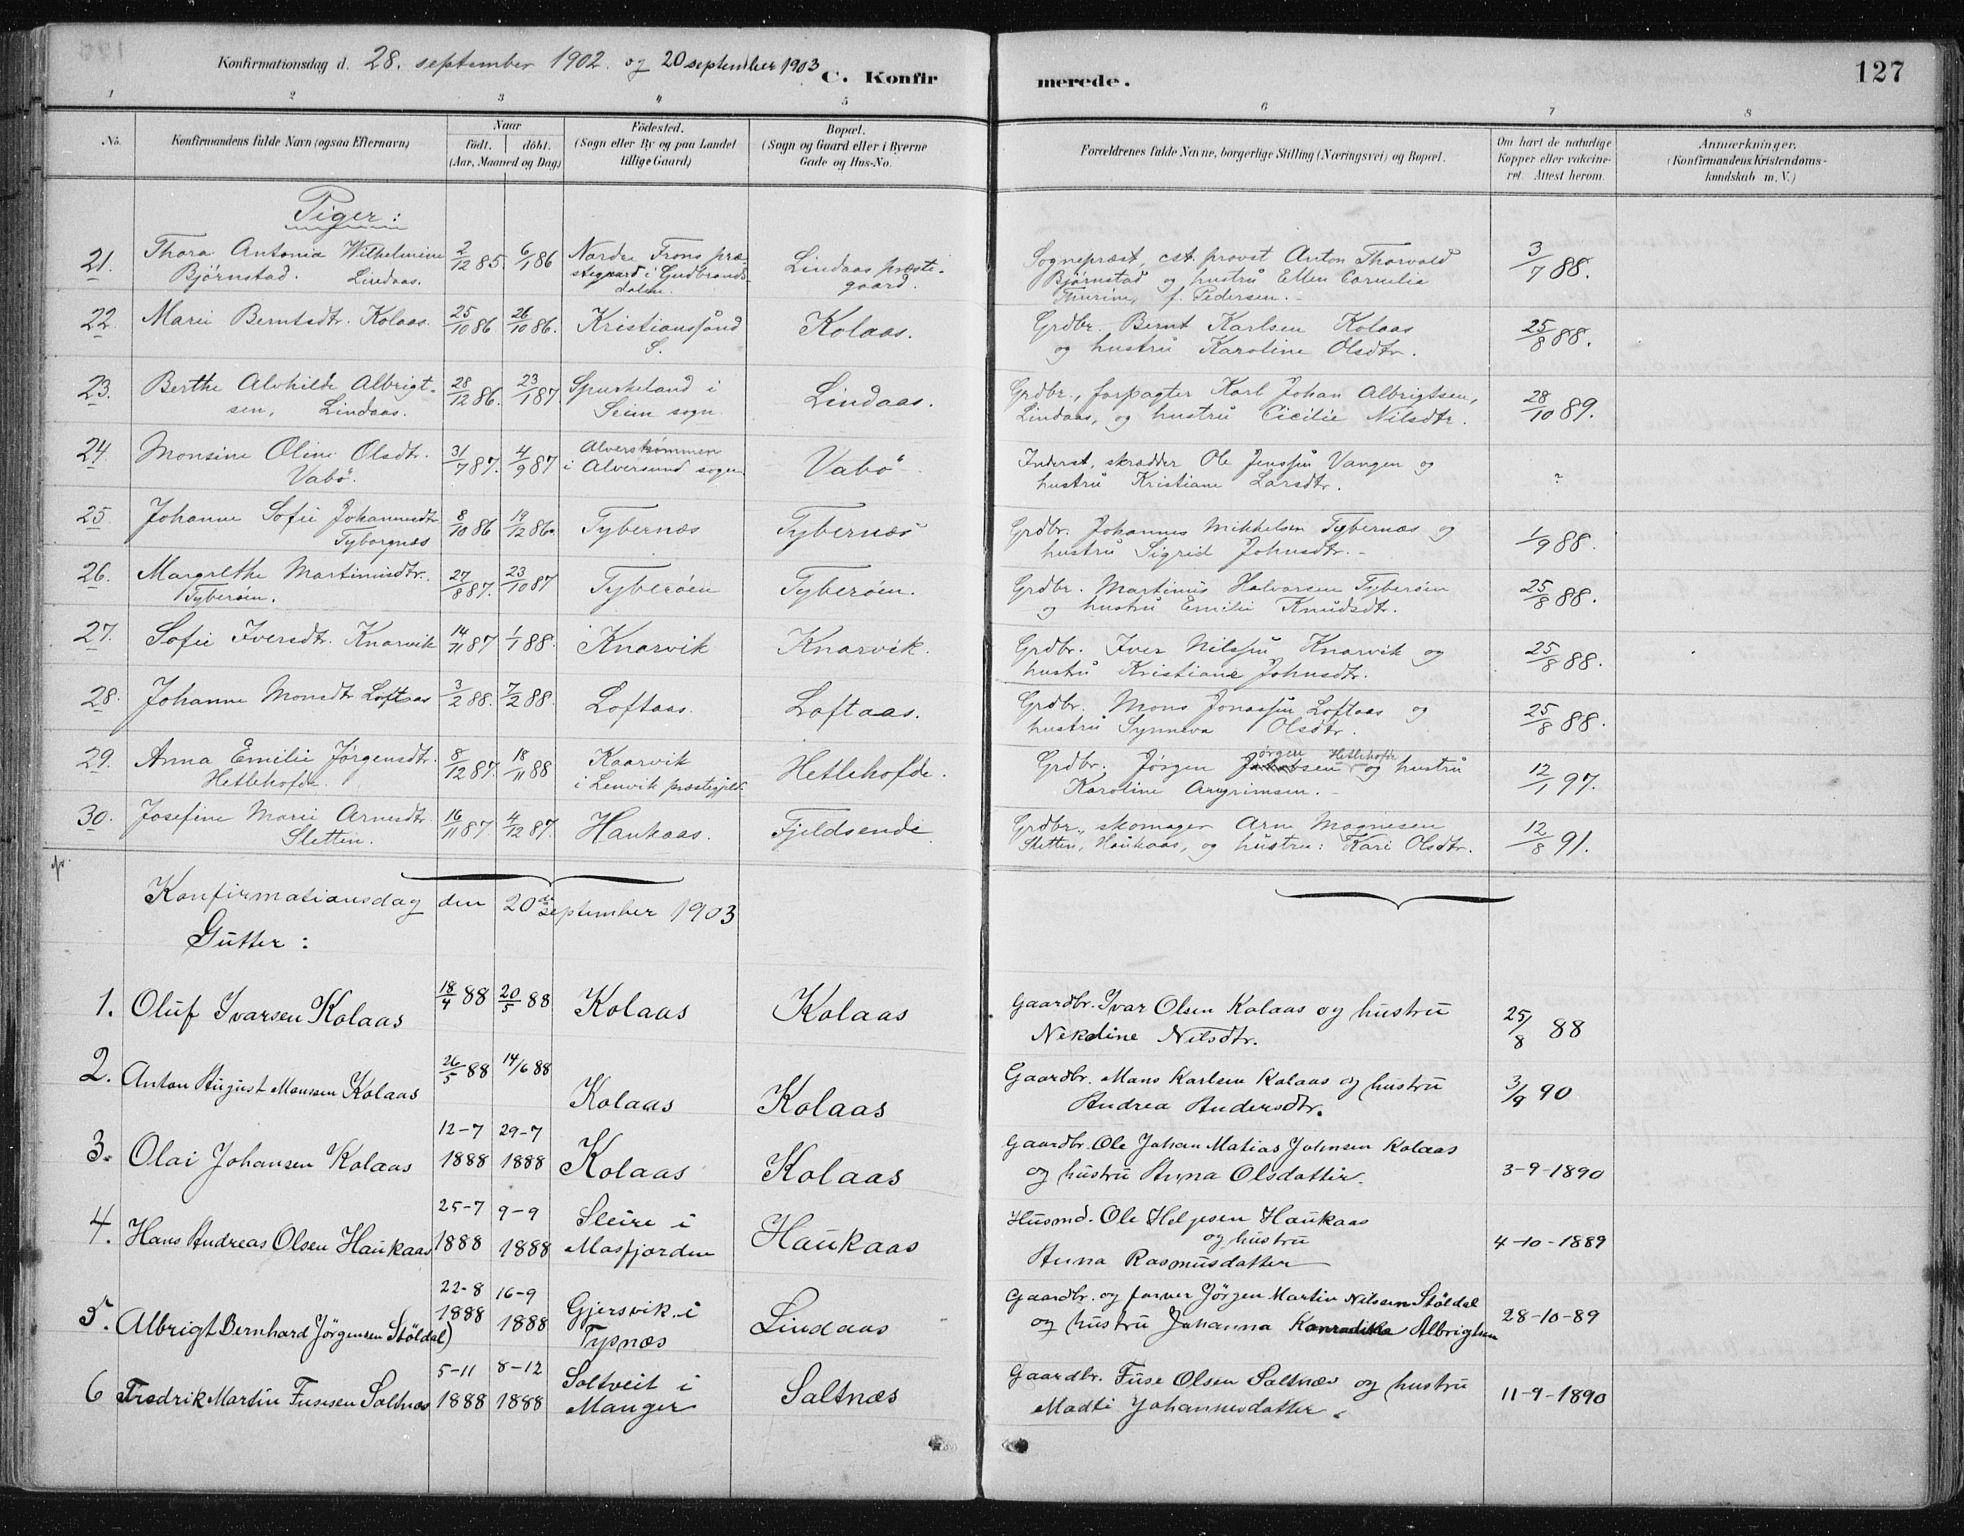 Konfirmationsdag d. 28. september 1902. og 20 september 1903
C. Konfir merede. 127
1 2 3 4 5 6 7 8
No. Konfirmandens fulde Navn (ogsaa Efternavn)
Naar
født. døbt.
(Aar, Maaned og Dag)
Födested.
(Sogn eller By og paa Landet
tillige Gaard)
Bopæl.
(Sogn og Gaard eller i Byerne
Gade og Hus-No.
Forældrenes fulde Navne, borgerlige Stilling (Næringsvei) og Bopæl.
Om havt de naturlige
Kopper eller vakcine-
ret. Attest herom.
Anmærkninger.
(Konfirmandens Kristendoms-
kundskab m.V.)
Piger:
21. Thora Antonia Wilhelmine 2/12 85. 6/1 86 Nordre Frons præ- Lindaas præste- Sognepræst, cst. provst Anton Thorvald 3/7 88.
Bjørnstad. Lindaas. stegaard i Gudbrands- gaard. Bjørnstad og hustru Ellen Cornelia
dalen. Thurine, f. Pedersen.
22. Marie Berntsdtr. Kolaas. 25/10 86 26/10 86. Kristianssand Kolaas. Grdbr. Bernt Karlsen Kolaas 25/8 88.
S. og hustru Karoline Olsdtr.
23. Berthe Alvhilde Albrigt- 28/12 86. 23/1 87 Spurkeland i Lindaas. Grdbr., forpagter Karl Johan Albrigtsen, 28/10 89.
sen, Lindaas. Seim sogn Lindaas, og hustru Cicilie Nilsdtr.
24. Monsine Oline Olsdtr. 31/7 87. 4/9 87 Alverstrømmen Vabö. Inderst, skrædder Ole Jenssen Vangen og ?
Vabö. i Alversund sogn hustru Kristiane Larsdtr.
25. Johanne Sofie Johannesdtr 8/10 86 19/12 86. Tybernæs Tybernæs Grdbr. Johannes Mikkelsen Tybernæs og 1/9 88.
Tyborgnæs hustru Sigrid Johnsdtr.
26. Margrethe Martinusdtr. 27/8 87. 23/10 87 Tyberøen Tyberøen. Grdbr. Martinus Halvorsen Tyberøen 25/8 88.
Tyberøen. og hustru Emilie Knudsdtr.
27. Sofie Iversdtr. Knarvik 14/11 87 1/1 88. Knarvik Knarvik. Grdbr. Iver Nilssen Knarvik og 25/8 88.
hustru Kristiane Johnsdtr.
28. Johanne Monsdtr Loftaas 3/2 88. 7/2 88. Loftaas. Loftaas. Grdbr. Mons Jonassen Loftaas og 25/8 88.
hustru Synneva Olsdtr.
29. Anna Emilie Jørgensdtr. 8/12 87. 18/11 88 Kaarvik Hetlehofde. Grdbr. Jørgen Jakobsen Jørgen Hetlehofde og hustru 12/1 97.
Hetlehofde. i Lenvik præstegjeld. Karoline Arngrimsen.
30. Josefine Marie Arnesdtr. 16/11 87. 4/12 87. Haukaas. Fjeldsende. Grdbr., skomager Arne Magnesen 12/8 91.
Sletten. Sletten, Haukaas, og hustru: Kari Olsdtr.
Konfirmationsdag den 20de september 1903
Gutter:
1. Oluf Ivarsen Kolaas 18/4 88 20/5 88 Kolaas Kolaas Gaardbr. Ivar Olsen Kolaas og hustru 25/8 88
Nekoline Nilsdtr.
2. Anton August Monsen Kolaas 26/5 88 14/6 88 Kolaas Kolaas Gaardbr. Mons Karlsen Kolaas og hustru 3/9 90
Andrea Andersdtr.
3. Olai Johansen Kolaas 12-7 1888 29-7 1888 Kolaas Kolaas Gaardbr. Ole Johan Matias Johnsen Kolaas 3-9-1890
og hustru Anna Olsdatter.
4. Hans Andreas Olsen Haukaas 25-7 1888 9-9 1888 Sleire i Haukaas Husmd. Ole Helgesen Haukaas 4-10-1889
Masfjorden og hustru
Anna Rasmusdatter
5. Albrigt Bernhard Jørgensen Stöldal) 22-8 1888 16-9 1888 Gjersvik i Lindaas Gaardbr. og farver Jörgen Martin Nilsen Stöldal 28-10-89
Tysnæs og hustru Johanna Konradika Albrigtsen
6 Fredrik Martin Fusesen Saltnæs 5-11 1888 8-12 1888 Soltveit i Saltnæs Gaardbr. Fuse Olsen Saltnæs og hustru 11-9-1890
Manger Madti Johannesdatter.